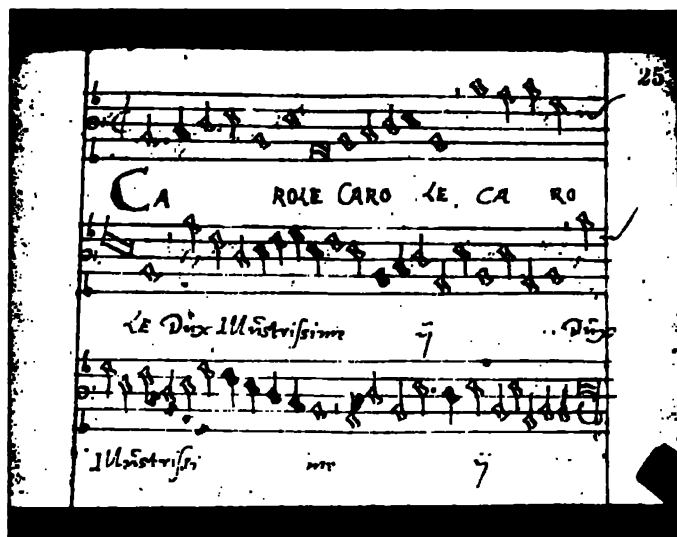 25
CA ROLE CARO LE CA RO
LE Dux Illustrissime ÿ Dux
Illustrissi me ÿ